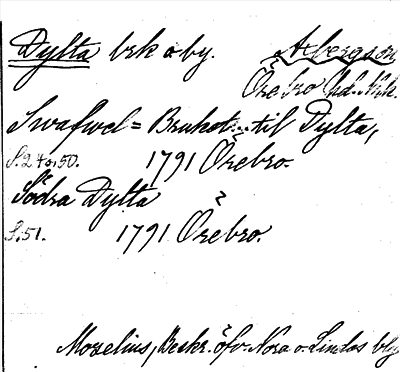 Dylta brk o by. Axbergs sn
Örebro hd. Nrk.
Swafwel=Bruket... til Dylta,
S. 2 & 50. 1791 Örebro.
Södra Dylta
S. 51. 1791 Örebro.
Morelius, Beskr. öfv. Nora o. Lindes blg